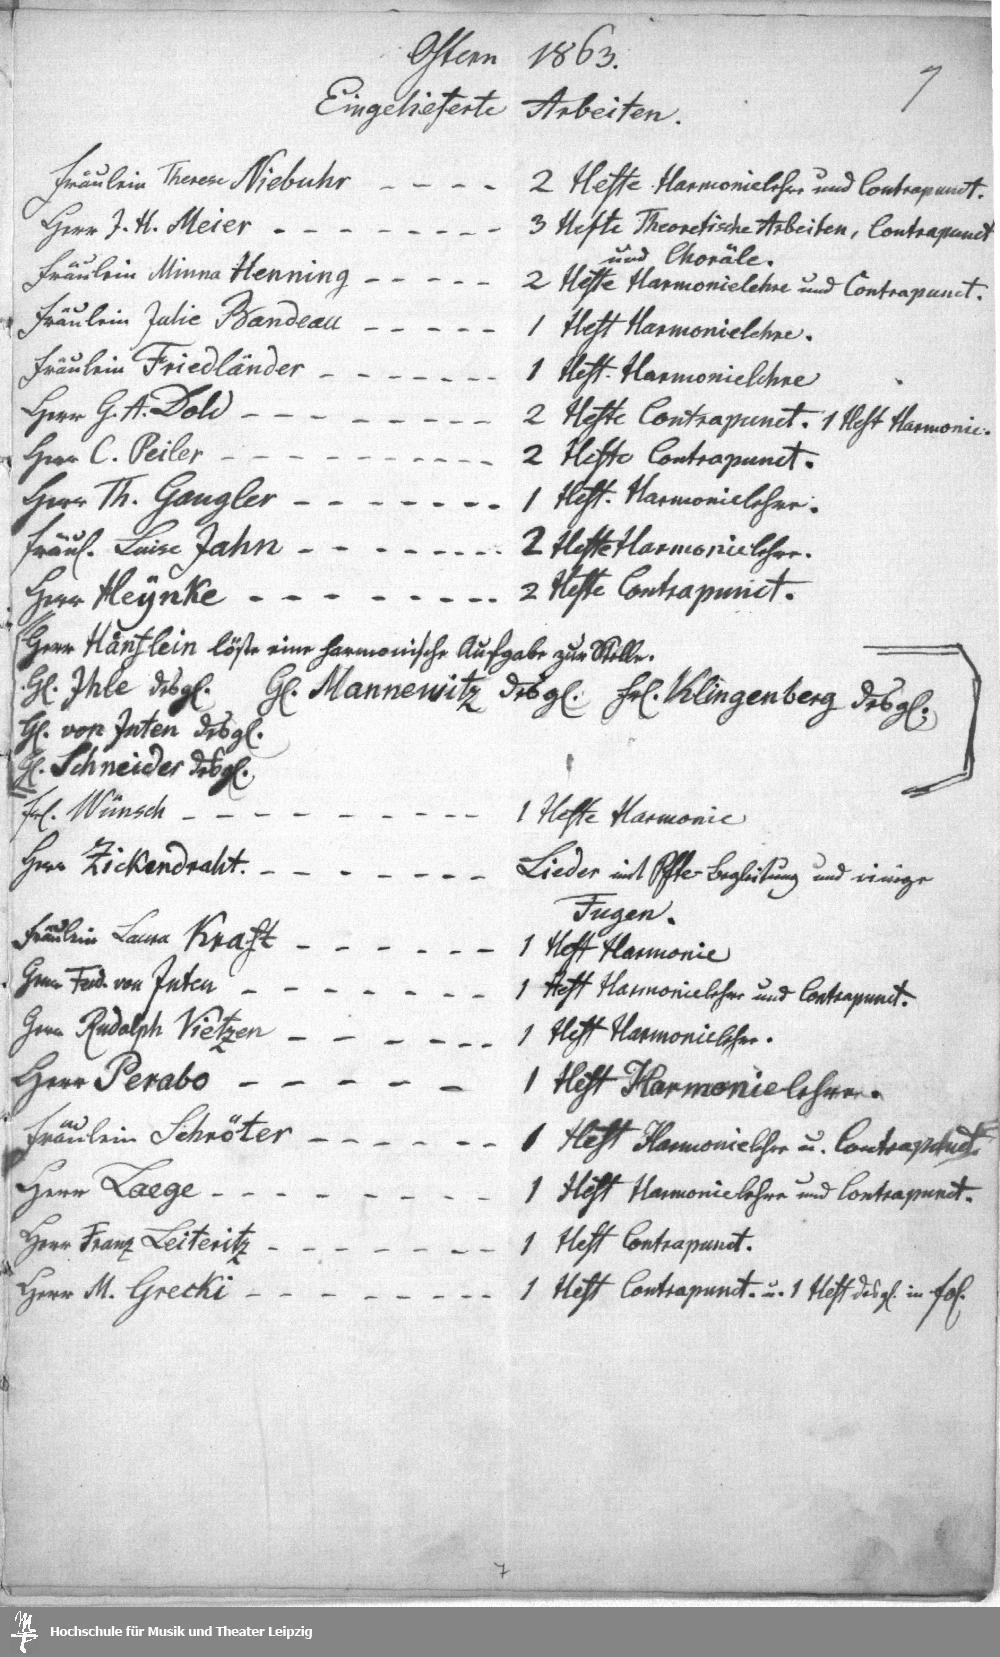 Ostern 1863.
7
Eingelieferte Arbeiten.
Fräulein Therese Niebuhr - - - - 2 Hefte Harmonielehre und Contrapunct.
Herr J. H. Meier - - - - - - - - 3 Hefte Theoretische Arbeiten, Contrapunct
und Choräle.
Fräulein Minna Henning - - - - - 2 Hefte Harmonielehre und Contrapunct.
Fräulein Julie Bandeau - - - - - 1 Heft Harmonielehre.
Fräulein Friedländer - - - - - - - 1 Heft. Harmonielehre
Herr G. A. Dold - - - - - - - 2 Hefte Contrapunct. 1 Heft Harmonie.
Herr C. Peiler - - - - - - - - - - 2 Hefte Contrapunct.
Herr Th. Gaugler - - - - - - - 1 Heft. Harmonielehre.
Fräul. Luise Jahn - - - - - - - 2 Hefte Harmonielehre.
Herr Heynke - - - - - - - - 2 Hefte Contrapunct.
Herr Hänflein löste eine harmonische Aufgabe zur Stelle.
H. Ihle desgl. H. Mannewitz desgl. Frl. Klingenberg desgl.
H. von Inten desgl.
H. Schneider desgl.
Frl. Wünsch - - - - - - - - - 1 Hefte Harmonie
Herr Zickendraht. - - - - - - - Lieder mit Pfte-Begleitung und einige
Fugen.
Fräulein Laura Kraft - - - - - - 1 Heft Harmonie
Herr Ferd. von Inten - - - - - - - - 1 Heft Harmonielehre und Contrapunct.
Herr Rudolph Vietzen - - - - - - 1 Heft Harmonielehre.
Herr Perabo - - - - - - 1 Heft Harmonielehre.
Fräulein Schröter - - - - - - - 1 Heft Harmonielehre u. Contrapunct.
Herr Laege - - - - - - - - - 1 Heft Harmonielehre und Contrapunct.
Herr Franz Leiteritz - - - - - - - 1 Heft Contrapunct.
Herr M. Grecki - - - - - - - - - 1 Heft Contrapunct. u. 1 Heft desgl. in fol.
7
Hochschule für Musik und Theater Leipzig